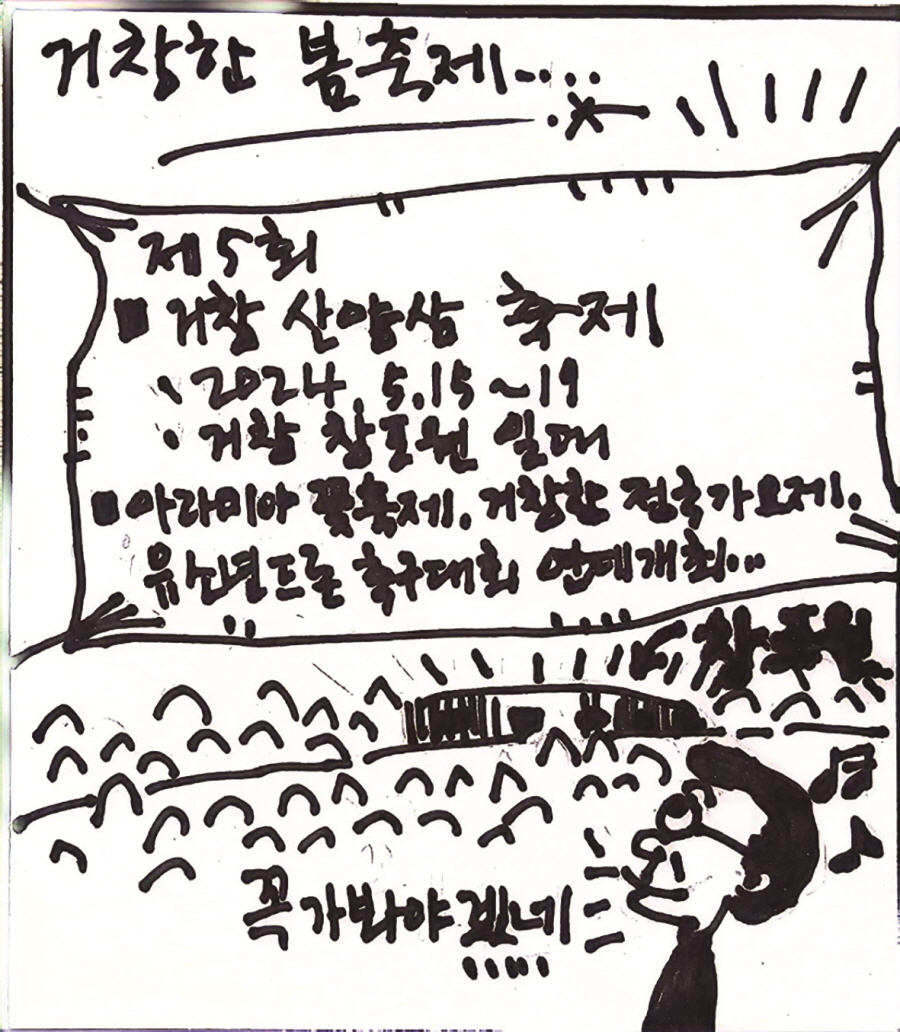 거창한 봄축제....
제5회
■ 거창 산양삼 축제
、2024. 5.15~19
• 거창 창포원 일대
■ 아라미아 꽃축제. 거창한 전국가요제.
유소년프로 축구대회 연예개최...
창포원
꼭 가봐야겠네